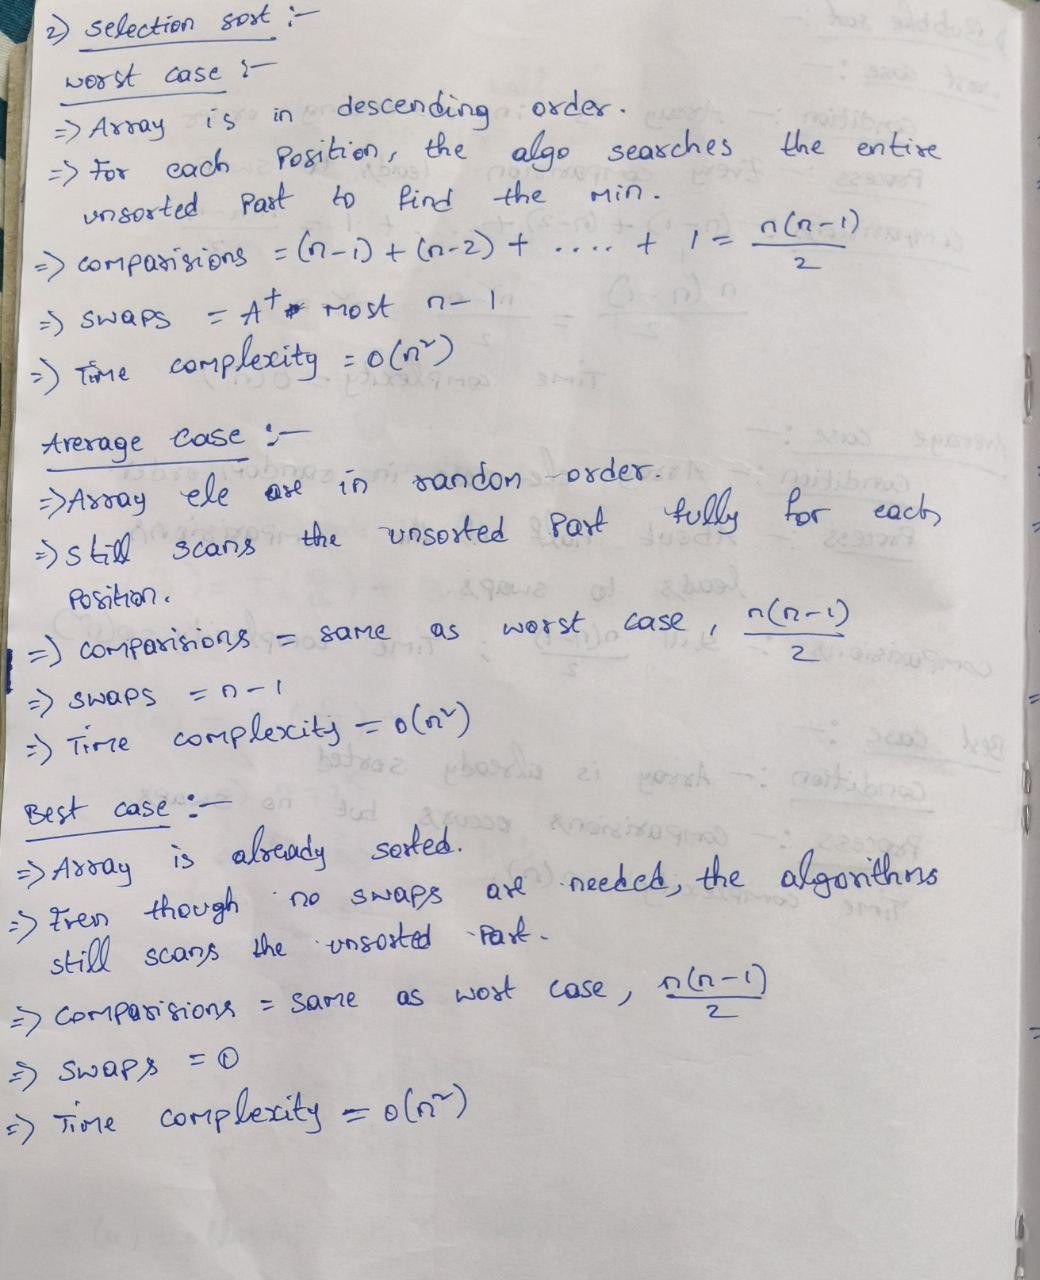 2) Selection sort :-
worst case :-
=> Array is in descending order.
=> For each Position, the algo searches the entire
unsorted Part to find the min.
=> comparisions = (n-1) + (n-2) + .... + 1 = n(n-1)/2
=> swaps = At most n-1
=> Time complexity = O(n²)
Average case :-
=> Array ele are in random order.
=> still scans the unsorted Part fully for each
Position.
=> comparisions = same as worst case, n(n-1)/2
=> swaps = n-1
=> Time complexity = O(n²)
Best case :-
=> Array is already sorted.
=> Even though no swaps are needed, the algorithms
still scans the unsorted Part.
=> Comparisions = same as wost case, n(n-1)/2
=> Swaps = 0
=> Time complexity = O(n²)